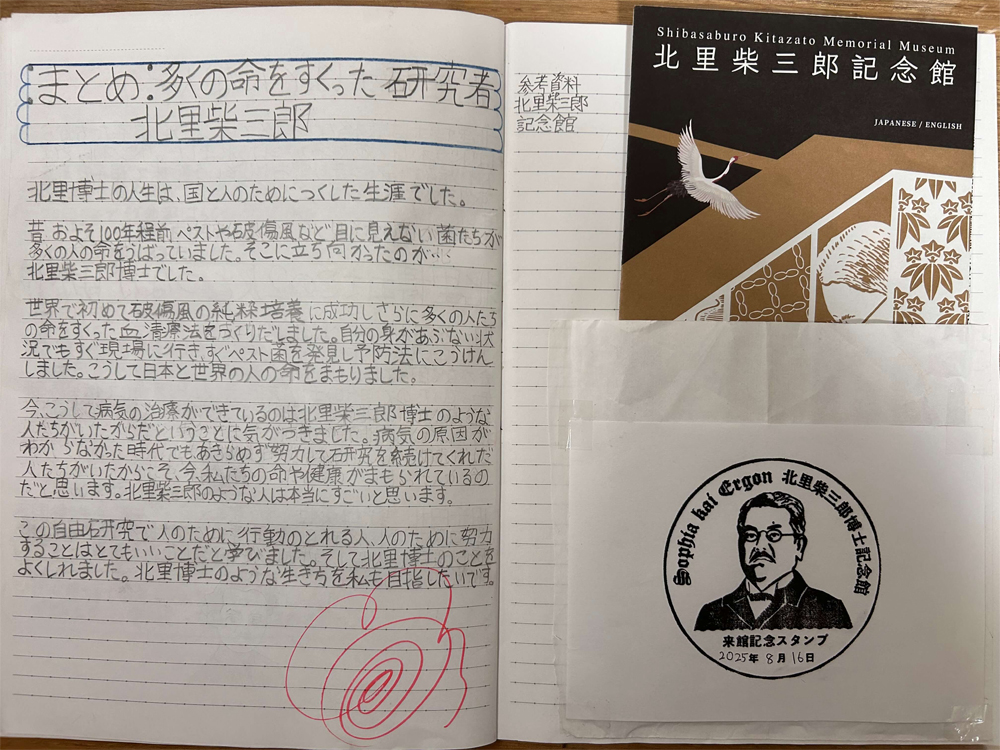 まとめ:多くの命をすくった研究者
北里柴三郎
北里博士の人生は、国と人のためにつくした生涯でした。
昔 およそ100年程前、ペストや破傷風など目に見えない菌たちが
多くの人の命をうばっていました。そこに立ち向かったのが…
北里柴三郎博士でした。
世界で初めて破傷風の純粋培養に成功しさらに多くの人たち
の命をすくった血清療法をつくりだしました。自分の身があぶない状
況でもすぐ現場に行き、すぐペスト菌を発見し予防法にこうけん
しました。こうして日本と世界の人の命をまもりました。
今、こうして病気の治療ができているのは北里柴三郎博士のような
人たちがいたからだということに気がつきました。病気の原因が
わからなかった時代でもあきらめず努力して研究を続けてくれた
人たちがいたからこそ、今、私たちの命や健康がまもられているの
だと思います。北里柴三郎のような人は本当にすごいと思います。
この自由研究で人のために行動のとれる人、人のために努力
することはとてもいいことだと学びました。そして北里博士のことを
よくしれました。北里博士のような生き方を私も目指したいです。
参考資料
北里柴三郎
記念館
Shibasaburo Kitazato Memorial Museum
北里柴三郎記念館
JAPANESE / ENGLISH
Sophia kai Ergon 北里柴三郎博士記念館
来館記念スタンプ
2025年 8月 16日